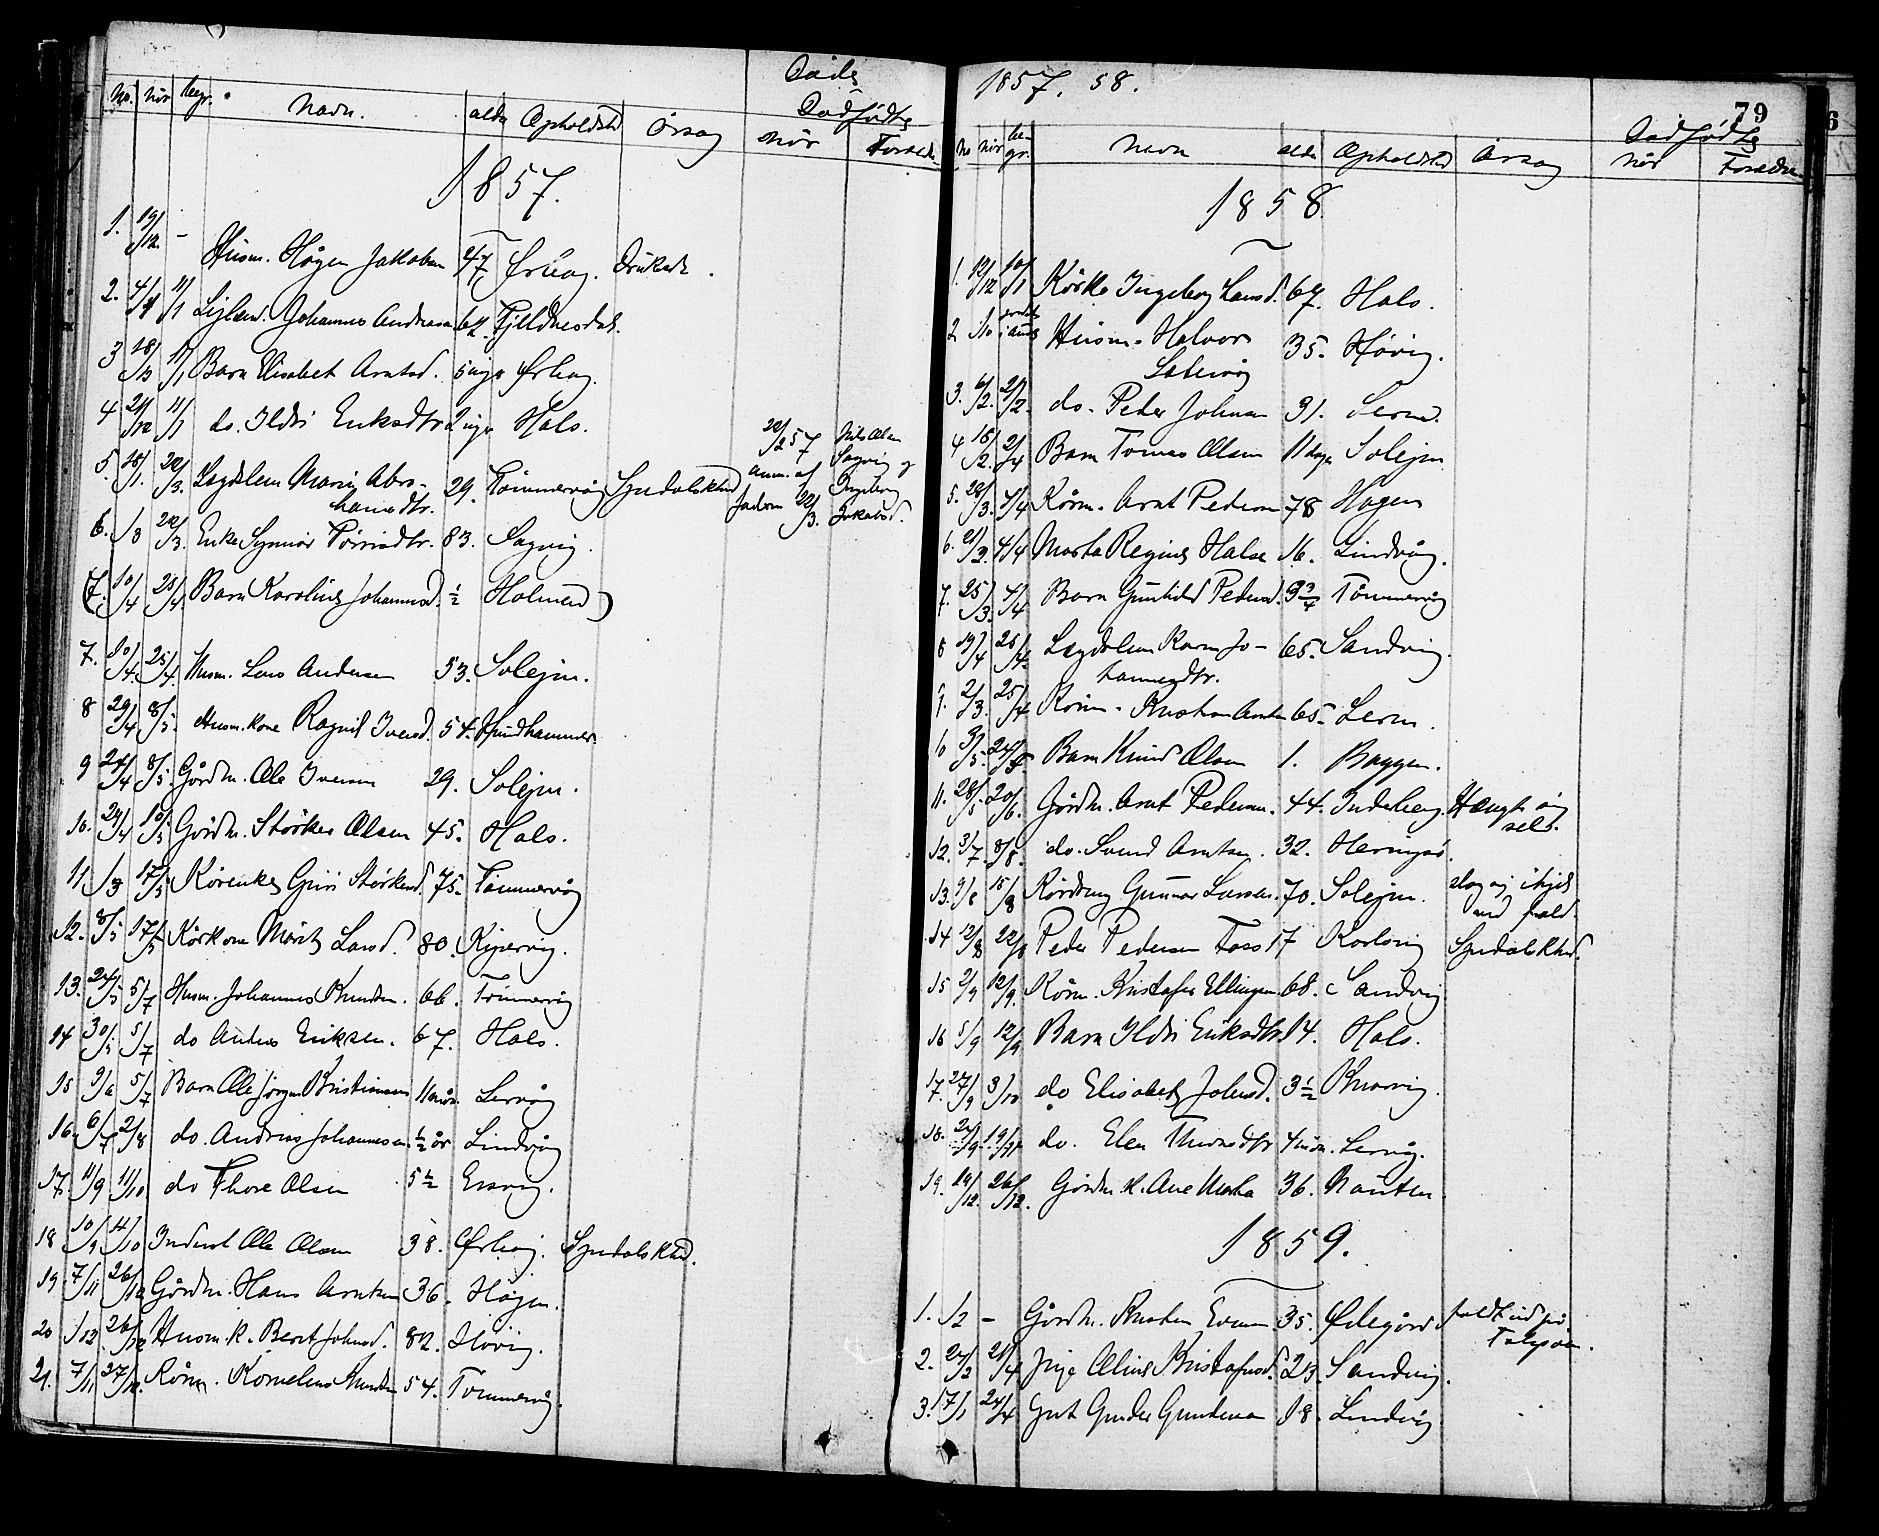 Døde
No. når begr. Navn. alder Opholdsted Årsag Dødfødte
når Forældre
1857.
1. 19/12 - Husm. Hågen Jakobsen 47 Ørbog. Druknede.
2. 11/1 Johannes Andreasen 62. Fjelldnesdal.
3 18/12 11/1 Barn Elisabet Arntsd. 5 uger
4 21/12 11/1 do. Ildri Eriksdtr. 2 uger Hals.
5. 18/1. 22/3. Lægdslem Marie Abra-
hamsdtr. 29. Tømmervåg Spedalskhed
22/2 57 Nils Olsen
anm. af Sagvig og
faderen 22/3. Ingeborg
Jakobsd.
6. 1/3 22/3. Enke Synnør 83. Sagvig.
(7. 10/4 25/4. Barn Karoline Johannesd. ½ Holmen)
7. 10/4. 25/4. Husm. Lars Andersen 53. Solejm.
8 29/4 8/5. Husm. kone Ragnil Iversd. 54. Hundhammer.
9 24/4 8/5 Gårdm. Ole Iversen 29. Solejm.
10. 24/4 10/5 Gårdm. Størker Olsen 45. Hals.
11 1/3 17/5 Kårenke Guri Størkersd. 75. Tømmervåg
12. 8/5 17/5 Kårkone Marit Larsd. 80. Kjørvig.
13. 24/5 5/7 Husm. Johannes Knudsen. 66. Tømmervåg
14 30/5 5/7 do Anders Eriksen. 67. Hals.
15 9/6 5/7 Barn Ole Jørgen Kristiansen 11 mån. Lervåg
16. 6/7 2/8 do. Andreas Johannesen ½ år Lindvåg
17. 11/9 11/10 do Thore Olsen 5½ Ersvig.
18 10/9 11/10 Inderst Ole Olsen 38. Spedalskhed.
19 7/11 26/12 Gårdm. Hans Arntsen 36. Hågen.
20 1/12 26/12 Husm. k. Berit Johnsd. 82. Høvig.
21. 7/11 27/12. Kårm. Kornelius Knudsen 54. Tømmervåg.
1857. 58.
79
No når be-
gr. Navn alder Opholdsted Årsag Dødfødte
når Forældre
1858.
1. 12/12 10/1 Kårke Ingeborg Larsd. 67. Hals.
2. 1/10 Husm. Halvor 35. Høvig.
3. 6/2. 21/2. do. Peder Johnsen 31. Lerm.
4 18/2. 2/4 Barn Tomas Olsen 11 dage Solejm
5. 28/3. 4/4 Kårm. Arnt Pedersen 78 Hagen
6. 21/3. 4/4 Marta Regine Halse 16. Lindvåg.
7. 25/3. 4/4 Barn Gunhild Pedersd. 3¾ Tømmervåg
8 19/4 25/4 Lægdslem Karen Jo-
hannesdtr. 65. Sandvig.
9. 2/3. 25/4 Kårm. Kristian Arntsen 65. Lerm.
10 3/5. 24/5. Barn Knud Olsen 1. Baggen.
11. 28/5. 20/6. Gårdm. Arnt Pedersen. 44. Inderberg. Hængte sig
selv.
12. 3/7. 8/8. do. Svend Arntsen. 32. Heringsø.
13. 9/8 15/8 Gunnar Larsen. 70. Solejm. slog sig ihjel
ved fald.
14 12/8 22/8 Peder Pedersen Foss 17 Korsvig Spedalskhed.
15 2/9 12/9. Kårm. Kristofer Ellingsen 68. Sandvig
16 5/9 12/9 Barn Ildri Eriksdtr. 14. Hals.
17. 27/9 3/10 do Elisabet Johnsd. 3½ Knarvig.
18. do. Elen Thoresdtr 4 mån. Lervåg.
19. 19/12. 26/12. Gårdm. k. Ane Marta 36. Nausten.
1859.
1. 1/2 - Gårdm. Kristen Evensen 35. Ødegård faldt ud på
2. 24/2 21/4 Pige Oline Kristofersd. 23. Sandvig.
3. 17/1 24/4 Gut Gunder Gundersen 18. Lindvåg